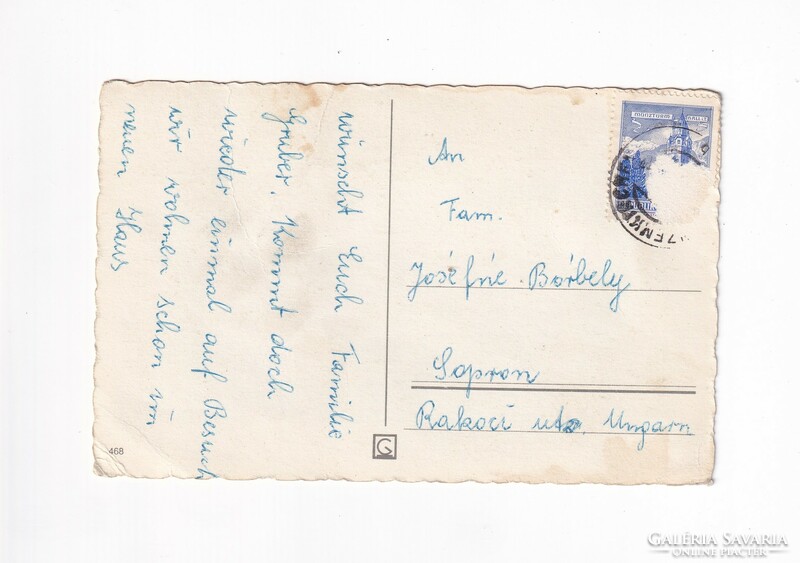 wünscht Euch Familie
Gruber, Kommt doch
wieder einmal auf Besuch
wir wohnen schon im
neuen Haus
An
Fam.
Joséfne Bórbely
Sopron
Rakoci utz. Ungarn
468
G
GALÉRIA SAVARIA
ONLINE PIACTÉR